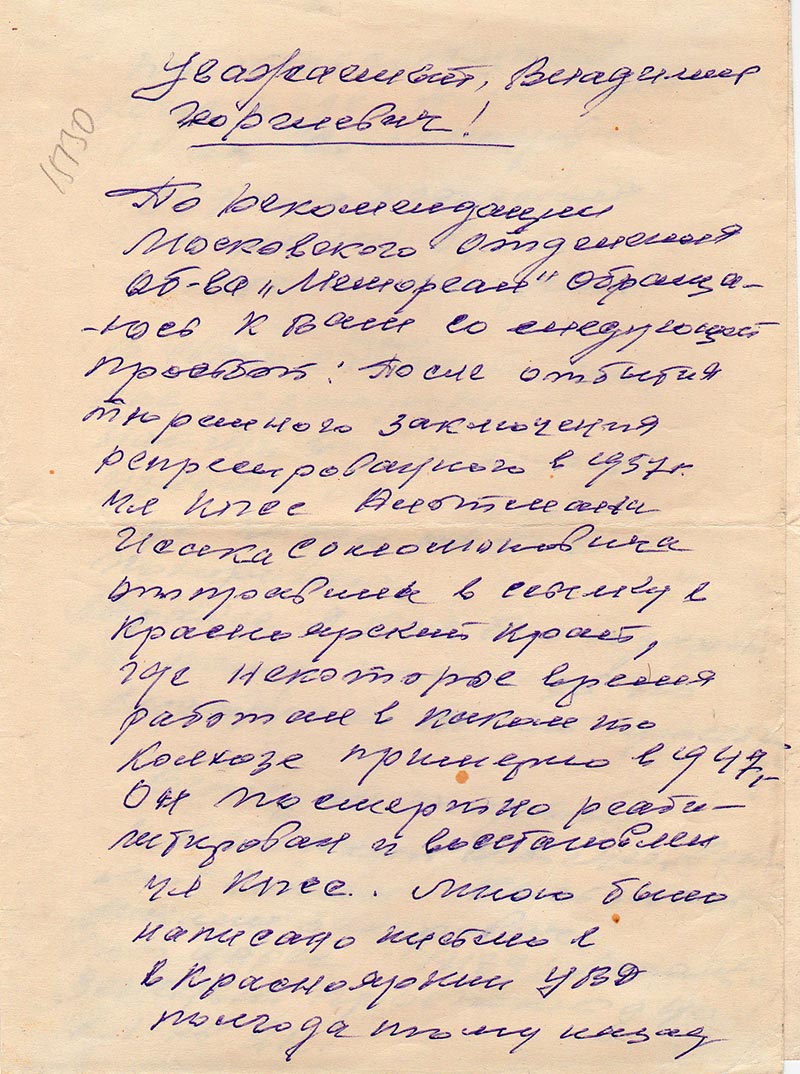 Уважаемый, Владимир
Георгиевич!
15130
По рекомендации
Московского отделения
об-ва „Мемориал" обраща-
-юсь к Вам со следующей
просьбой: После отбытия
тюремного заключения
репрессированного в 1937г.
чл КПСС
Исаака Соломоновича
отправили в ссылку в
Красноярский край,
где некоторое время
работал в каком то
колхозе примерно в 1947г.
Он посмертно реаби-
литирован и восстановлен
чл КПСС. Мною было
написано письмо в
в Краснояркий УВД
полгода тому назад